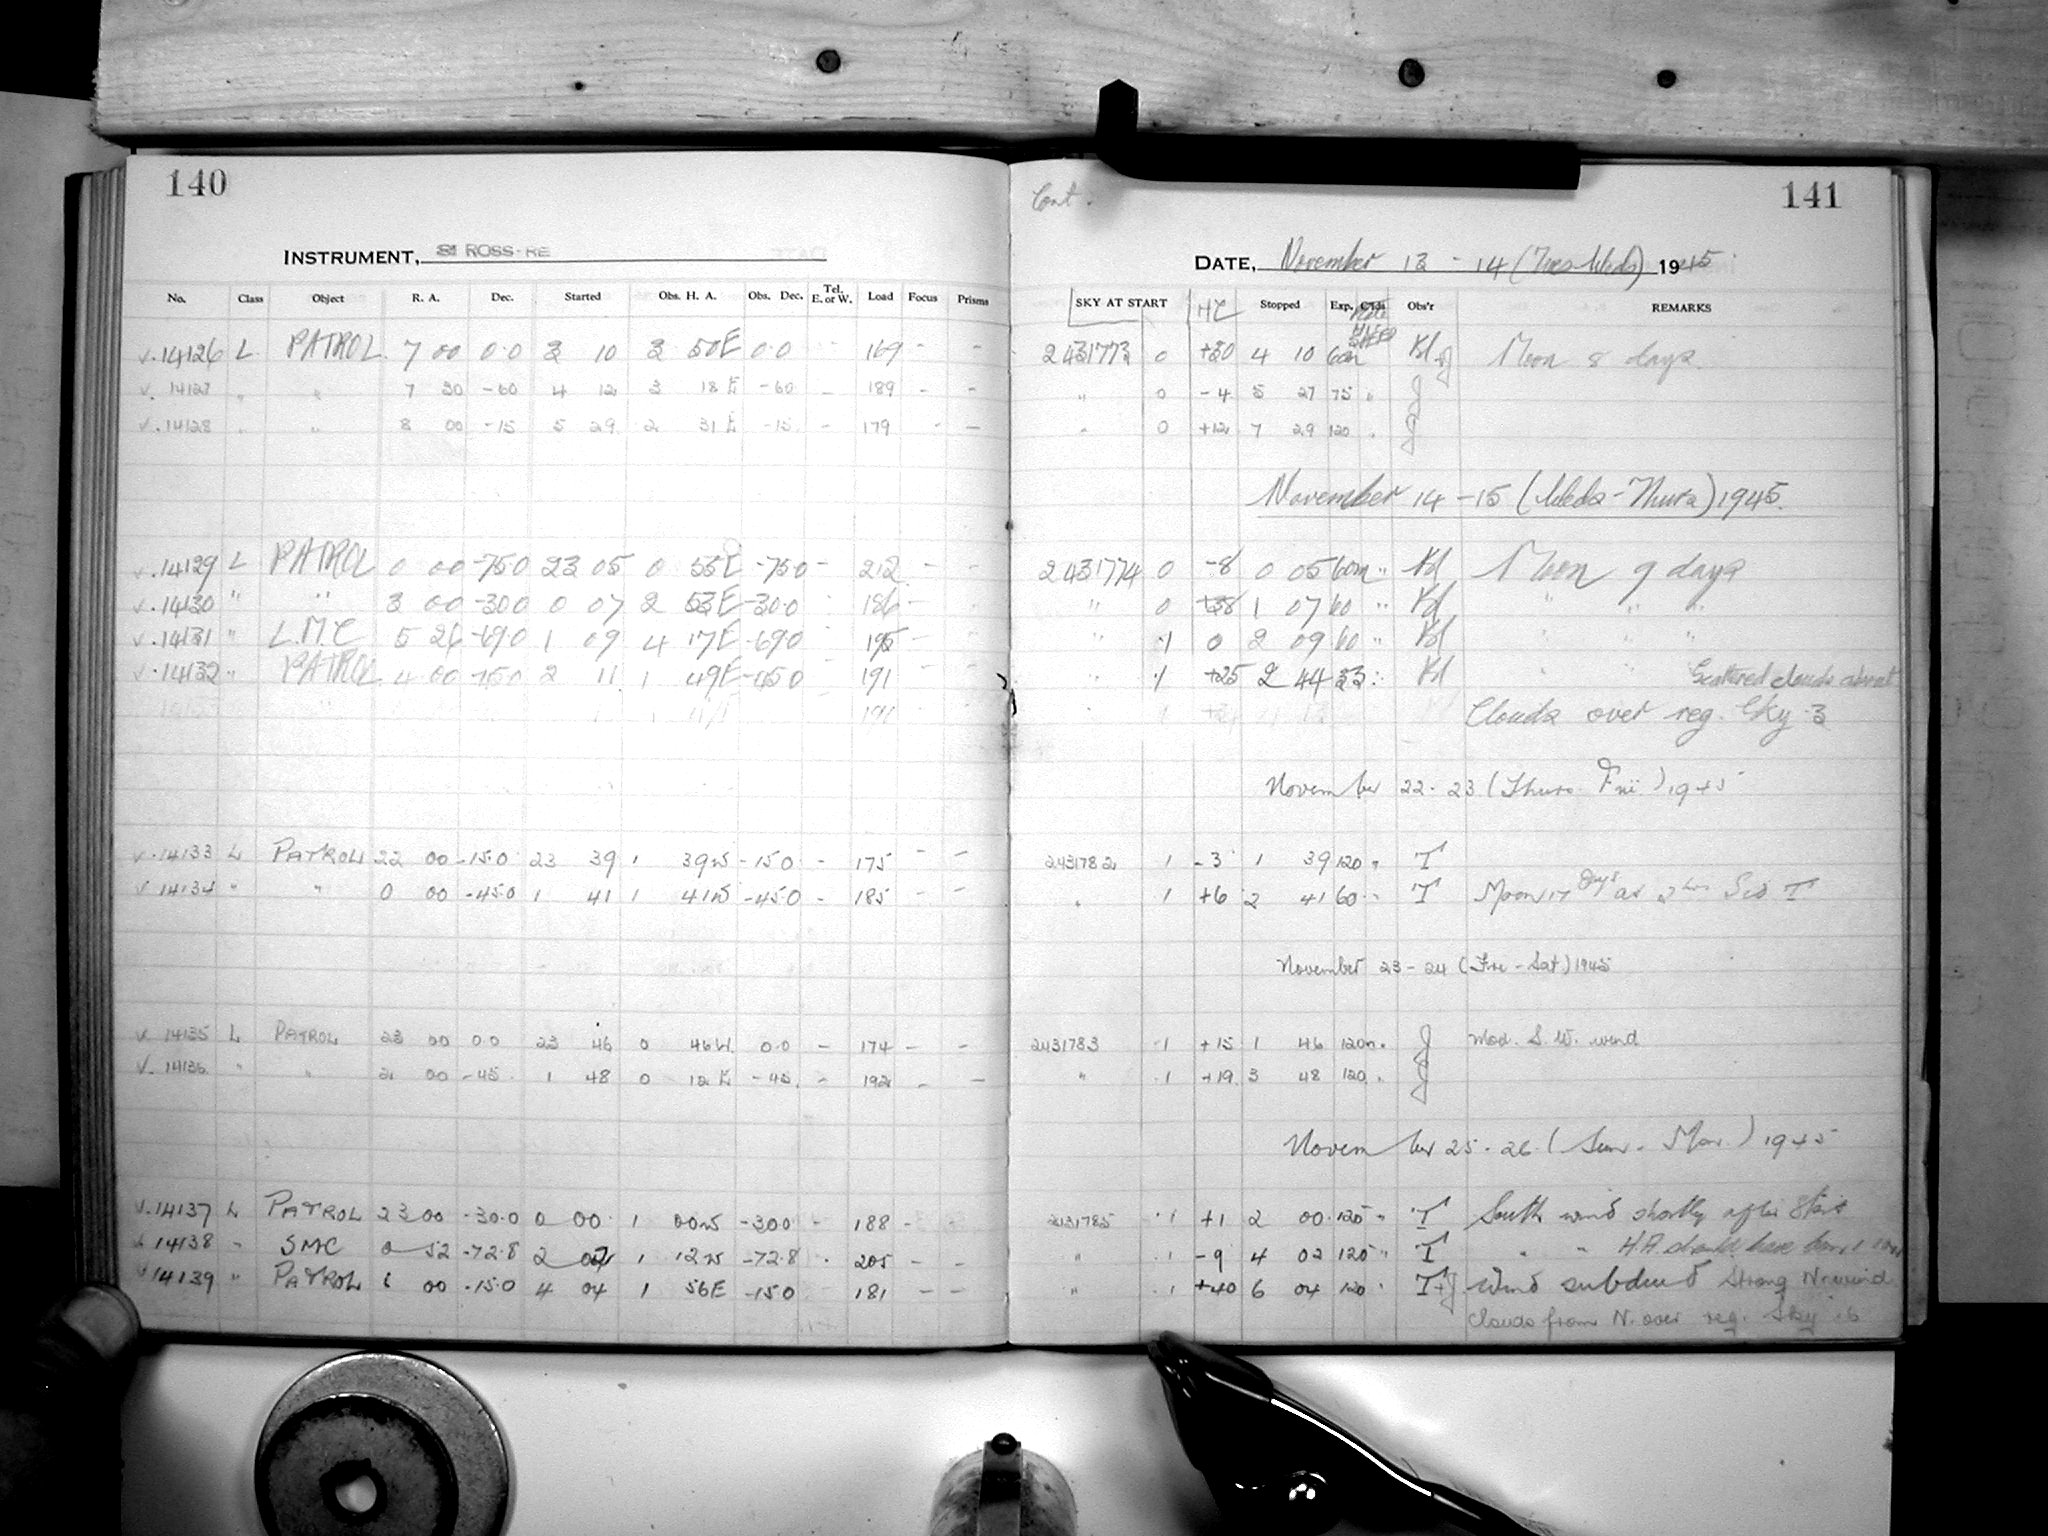 140
INSTRUMENT, ROSS-RE
No. Class Object R. A. Dec. Started Obs. H. A. Obs. Dec. Tel. E. or W. Load Focus Prisms
14126 L PATROL 7 00 0.0 3 10 3 50E 0.0 169 - -
14127 " " 7 30 -60 4 12 3 18E -60 - 189 - -
14128 " " 8 00 -15 5 29 2 31E -15 - 179 - -
14129 L PATROL 0 00 -75.0 23 05 0 55E -75.0 - 212 - -
14130 " " 3 00 -30.0 0 07 2 53E -30.0 186 -
14131 " L.M.C 5 26 -69.0 1 09 4 17E -69.0 195
14132 " PATROL 4 00 -45.0 2 11 1 49E -45.0 191 - -
14133 L PATROL 22 00 -15.0 23 39 1 39W -15.0 - 175 - -
14134 " " 0 00 -45.0 1 41 1 41W -45.0 - 185 - -
14135 L PATROL 23 00 0.0 23 46 0 46W. 0.0 - 174 - -
14136 " " 2 00 -45. 1 48 0 12E -45. - 192 - -
14137 L PATROL 23 00 -30.0 0 00 1 00W -30.0 - 188 -
14138 " SMC 0 52 -72.8 2 02 1 12W -72.8 205 - -
14139 " PATROL 6 00 -15.0 4 04 1 56E -15.0 181 - -
Cont. 141
DATE, November 13 - 14 (Tues-Weds) 1945
SKY AT START HC Stopped Exp. Obs'r REMARKS
2431773 0 +30 4 10 60m Bl J Moon 8 days.
" 0 -4 5 27 75 " J
" 0 +12 7 29 120 " J
November 14 - 15 (Weds - Thurs) 1945.
2431774 0 -8 0 05 60m " Bl Moon 9 days
" 0 +38 1 07 60 " Bl " " "
" .1 0 2 09 60 " Bl " " "
" .1 +25 2 44 33 " Bl " " Scattered clouds about
Clouds over reg. Sky .3
November 22 - 23 (Thurs - Fri) 1945
2431782 .1 -3 1 39 120 " T
" .1 +6 2 41 60 " T Moon 17 days at 2 hrs Sid T
November 23 - 24 (Fri - Sat) 1945
2431783 .1 +15 1 46 120m. J Mod. S. W. wind
" .1 +19 3 48 120 " J
November 25 - 26 (Sun - Mon.) 1945
2431785 .1 +1 2 00 120 " T South wind shortly after start
" .1 -9 4 02 120 " T " " H.A should have been 1
" .1 +40 6 04 120 " T+J Wind subdued Strong N. wind
Clouds from N. over reg. Sky .6